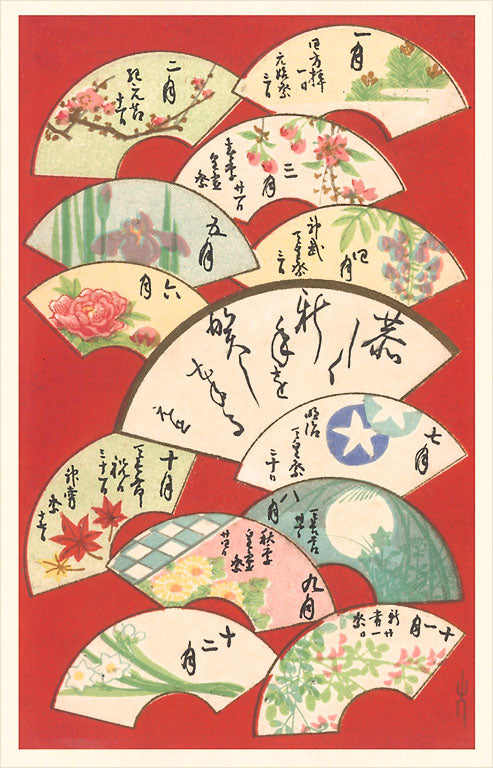 一月
四方拝
一日
元始祭
三日
二月
紀元節
十一日
三月
春季
皇霊祭
四月
神武
天皇祭
三日
五月
六月
恭しく
新年を
賀し
七月
明治
天皇祭
三十日
八月
天長節
九月
秋季
皇霊祭
十月
天長節
祝日
三十一日
神嘗祭
十一月
新嘗祭
十二月